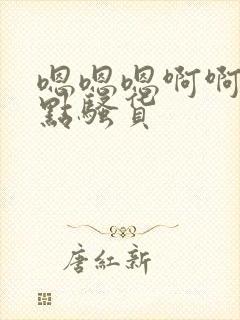 嗯嗯嗯啊啊
點騷貨
唐紅新